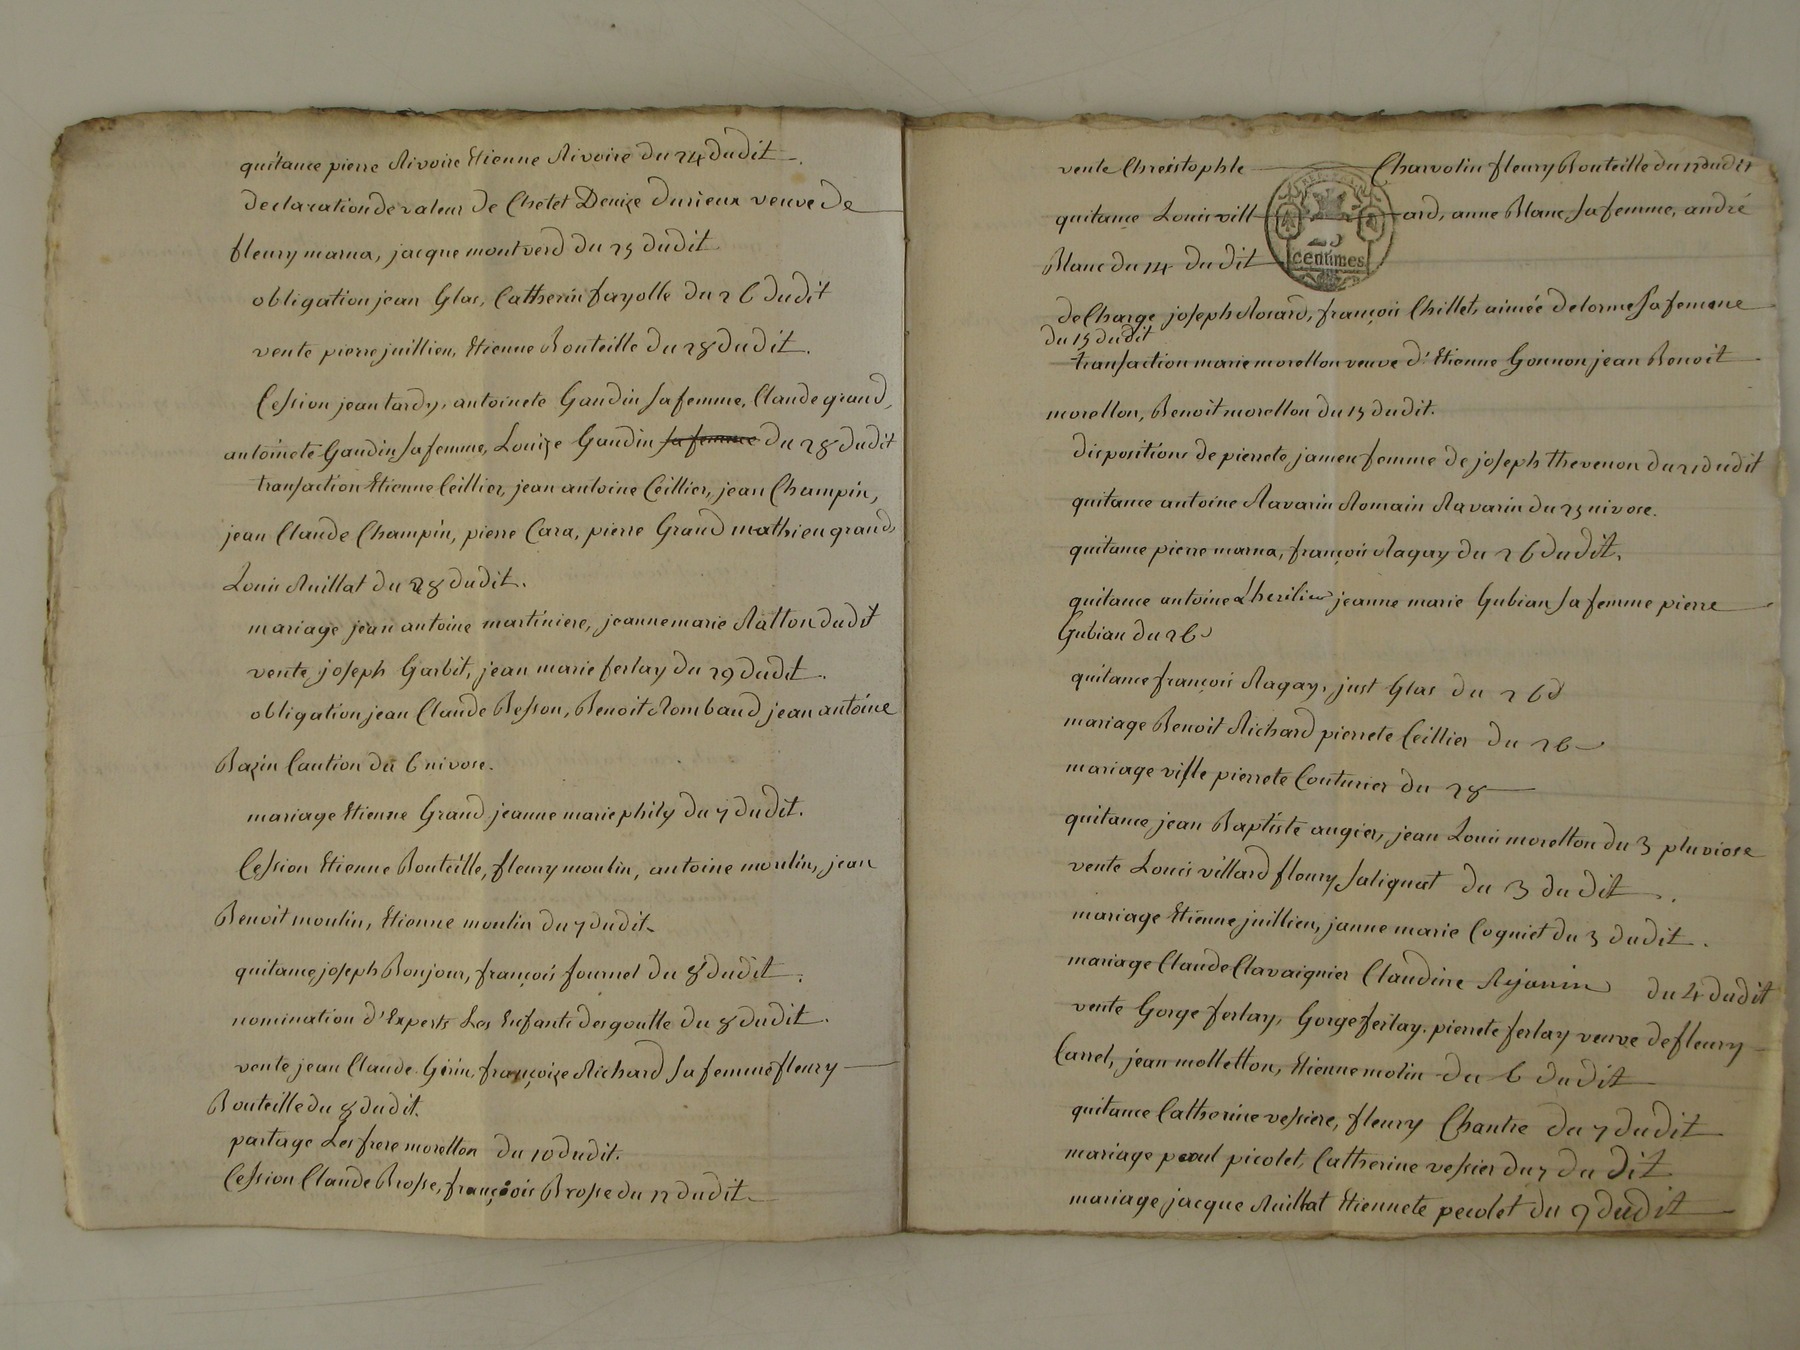 quitance pierre Rivoire Etienne Rivoire du 24 dudit.
declaration de valeur de Chetet Denize durieux veuve de
fleury marna, jacque montverd du 25 dudit
obligation jean Glas, Catherin fayolle du 26 dudit
vente pierre juillien, Etienne Bouteille du 28 dudit.
Cession jean tardy, antoinete Gaudin sa femme, Claude grand,
antoinete Gaudin sa femme, Louize Gaudin sa femme du 28 dudit
transaction Etienne Ceillier, jean antoine Ceillier, jean Champin,
jean Claude Champin, pierre Cara, pierre Grand mathieu grand,
Louis Ruillat du 28 dudit.
mariage jean antoine martiniere, jeanne marie Ratton dudit
vente joseph Garbit, jean marie ferlay du 29 dudit.
obligation jean Claude Besson, Benoit Rombaud jean antoine
Bazin Caution du 6 nivose.
mariage Etienne Grand jeanne marie phily du 7 dudit.
Cession Etienne Bouteille, fleury moulin, antoine moulin, jean
Benoit moulin, Etienne moulin du 7 dudit.
quitance joseph Bonjour, françois fournel du 8 dudit.
nomination d'Experts Les Enfants desgoutte du 8 dudit.
vente jean Claude Gerin, françoize Richard sa femme fleury
Bouteille du 8 dudit.
partage Les frere morellon du 10 dudit.
Cession Claude Brosse, françois Brosse du 12 dudit.
vente Chreistophle Charvolin fleury Bouteille du 12 dudit
quitance Louis vill ard, anne Blanc sa femme, andré
25
centimes
Blanc du 14 du dit
de Charge joseph Rorard, françois Chillet, aimée delorme sa femme
du 15 dudit
transaction marie morellon veuve d'Etienne Gonnon jean Benoit
morellon, Benoit morellon du 15 dudit.
dispositions de pierrete jamen femme de joseph thevenon du 21 dudit
quitance antoine Ravarin Romain Ravarin du 25 nivose.
quitance pierre marna, françois Ragay du 26 dudit.
quitance antoine jeanne marie Gubian sa femme pierre
Gubian du 26
quitance françois Ragay, just Glas du 26 d
mariage Benoit Richard pierrete Ceillier du 26
mariage viste pierrete Couturier du 28
quitance jean Baptiste augier, jean Louis morellon du 3 pluviose
vente Louis villard fleury Salignat du 3 du dit.
mariage Etienne juillien, janne marie Cogniet du 3 dudit.
mariage Claude Clavaignier Claudine Rejanin du 4 dudit
vente Gorge ferlay, Gorge ferlay. pierrete ferlay veuve de fleury
Carrel, jean molletton, Etienne molin du 6 du dit
quitance Catherine vessiere, fleury Chantre du 7 dudit
mariage paul picolet, Catherine vessier du 7 du dit
mariage jacque Ruillat Etiennete pecolet du 9 dudit